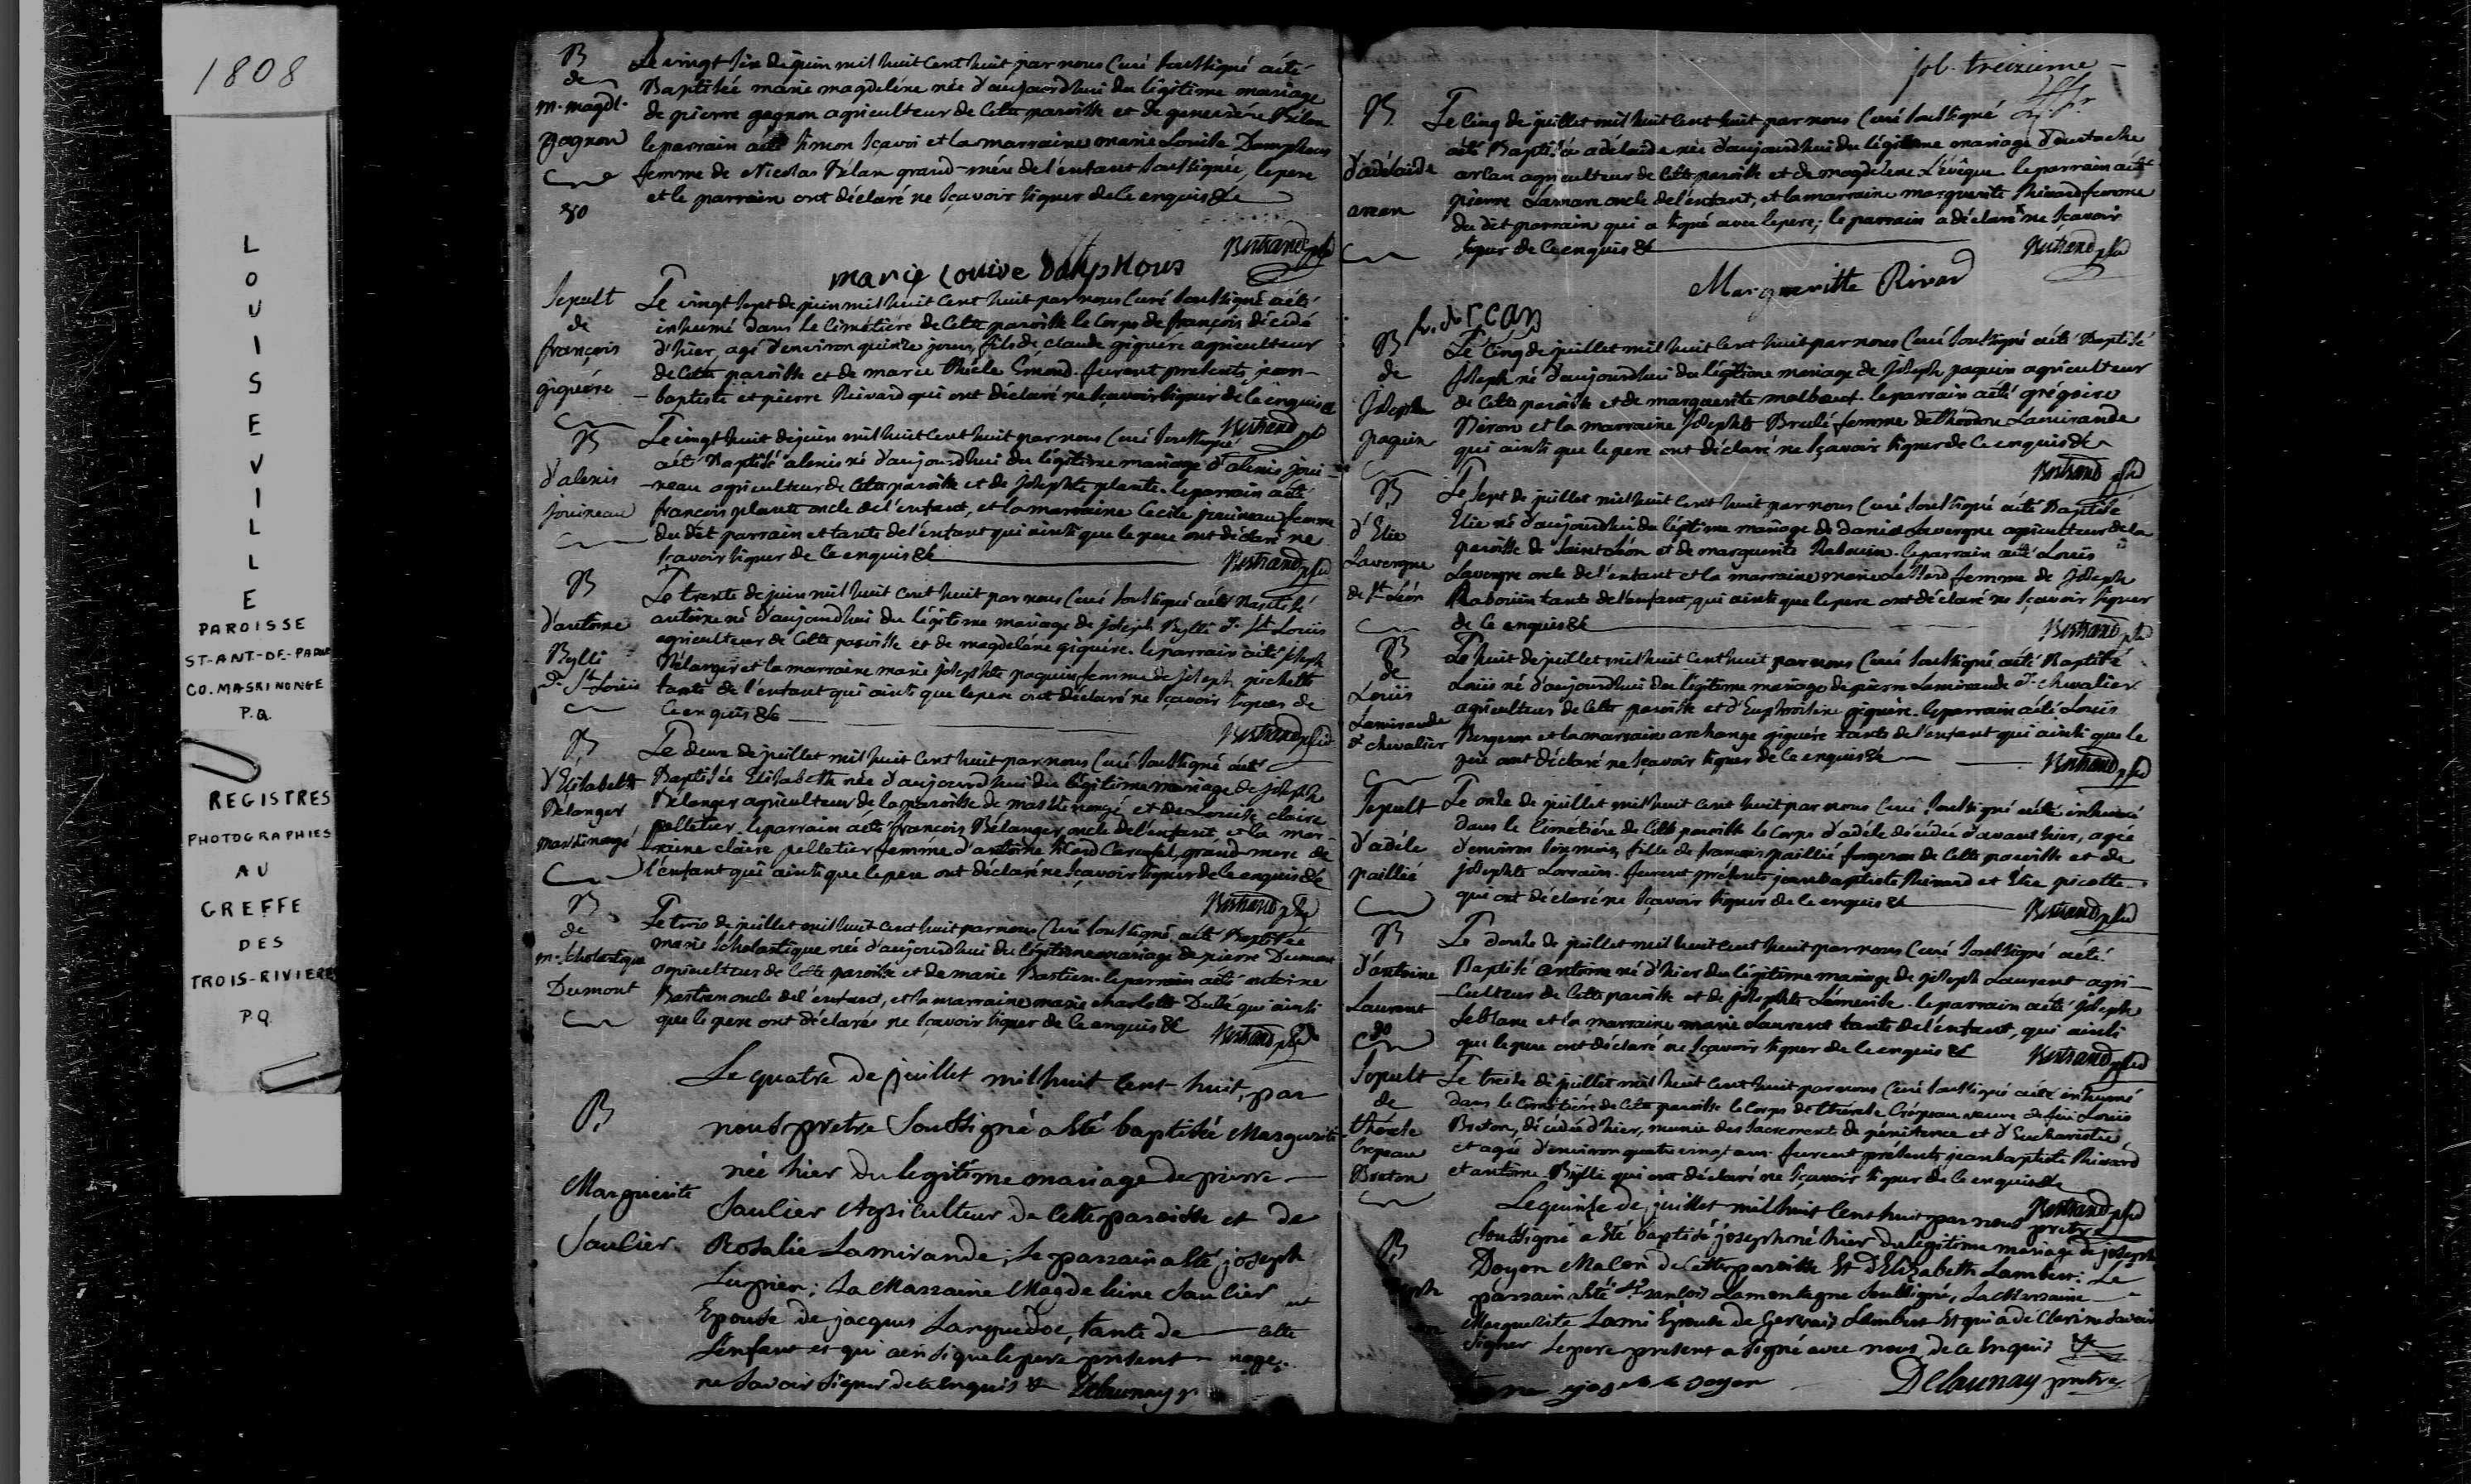 1808
LOUISEVILLE
PAROISSE
ST-ANT-DE-PADOUE
CO. MASKINONGE
P.Q.
REGISTRES
PHOTOGRAPHIES
AU
GREFFE
DES
TROIS-RIVIERES
P.Q.
B
de
m. magdl.
gagnon
80
Le vingt six de juin mil huit cent huit par nous Curé soussigné a été
Baptisée marie magdeléne née d'aujourdhui du légitime mariage
de pierre gagnon agriculteur de cette paroisse et de geneviéve Bélan
le parrain a été simon sçavoi et la marraine marie Louise Dauphous
femme de Nicolas Bélan grand-mére de l'enfant soussignée, le pere
et le parrain ont déclaré ne sçavoir signer de ce enquis &c
Bertrand ptre
marie Louise
Sepult
de
françois
giguére
Le vingt sept de juin mil huit cent huit par nous Curé soussigné a été
inhumé dans le cimétiére de cette paroisse le corps de françois décédé
d'hier, agé d'environ quinze jours, fils de claude giguére agriculteur
de cette paroisse et de marie Émond. furent presents jean-
baptiste et pierre Rivard qui ont déclaré ne sçavoir signer de ce enquis &
Bertrand ptre
B
d'alexis
jouineau
Le vingt huit de juin mil huit cent huit par nous Curé soussigné
a été Baptisé alexis né d'aujourdhui du légitime mariage d'alexis joui-
neau agriculteur de cette paroisse et de josephte plante. le parrain a été
françois plante oncle de l'enfant, et la marraine Cecile jouineau femme
du dit parrain et tante de l'enfant qui ainsi que le pere ont déclaré ne
sçavoir signer de ce enquis &c
Bertrand ptre
B
d'antoine
Bylli
dt St Louis
Le trente de juin mil huit cent huit par nous Curé soussigné a été Baptisé
antoine né d'aujourdhui du légitime mariage de joseph Bylli dt St Louis
agriculteur de cette paroisse et de magdeléne giguére. le parrain a été joseph
Bélanger et la marraine marie josephte paquin femme de joseph pichette
tante de l'enfant qui ainsi que le pere ont déclaré ne sçavoir signer de
ce enquis &c
Bertrand ptre
B
d'Elisabeth
Bélanger
maskinongé
Le deux de juillet mil huit cent huit par nous Curé soussigné a été
Baptisée Elisabeth née d'aujourdhui du légitime mariage de joseph
Bélanger agriculteur de la paroisse de maskinongé et de Louise claire
pelletier. le parrain a été françois Bélanger oncle de l'enfant et la mar-
raine claire pelletier femme d'antoine sicard Carufel, grand mere de
l'enfant qui ainsi que le pere ont déclaré ne sçavoir signer de ce enquis &c
Bertrand ptre
B
de
m. scholastique
Dumont
Le trois de juillet mil huit cent huit par nous Curé soussigné a été Baptisée
marie scholastique née d'aujourdhui du légitime mariage de pierre Dumont
agriculteur de cette paroisse et de marie Bastien. le parrain a été antoine
Bastien oncle de l'enfant, et la marraine marie charlotte Dubé qui ainsi
que le pere ont déclarés ne sçavoir signer de ce enquis &c
Bertrand ptre
B
Marguerite
Saulier
Le quatre de juillet mil huit cent huit, par
nous pretre soussigné a Eté baptisée Marguerite
née hier du legitime mariage de pierre
Saulier Agriculteur de cette paroisse et de
Rosalie Lamirande; le parrain a Eté joseph
Lupien; La Marraine Magdeleine Saulier
Epouse de jacques Languedoc, tante de
L'enfant et qui ainsi que le pere présent
ne savoir signer de ce Enquis & Delaunay p
fol. treizieme
B
d'adélaide
arcan
Le cinq de juillet mil huit cent huit par nous Curé soussigné
a été Baptisée adélaide née d'aujourdhui du légitime mariage d'eustache
arcan agriculteur de cette paroisse et de magdeléne L'évêque. le parrain a été
pierre Lamare oncle de l'enfant, et la marraine marguerite Rivard femme
du dit parrain qui a signé avec le pere; le parrain a déclaré ne sçavoir
signer de ce enquis &c
Bertrand ptre
Margueritte Rivard
arcan
B
de
Joseph
paquin
Le cinq de juillet mil huit cent huit par nous Curé soussigné a été Baptisé
joseph né d'aujourdhui du légitime mariage de joseph paquin agriculteur
de cette paroisse et de marguerite malboeuf. le parrain a été grégoire
Néron et la marraine josephte Brulé femme de théodore Lamirande
qui ainsi que le pere ont déclaré ne sçavoir signer de ce enquis &c
Bertrand ptre
B
d'Elie
Lavergne
de St Léon
Le sept de juillet mil huit cent huit par nous Curé soussigné a été Baptisé
Elie né d'aujourdhui du légitime mariage de daniel Lavergne agriculteur de la
paroisse de saint Léon et de marguerite Rabouin. le parrain a été Louis
Lavergne oncle de l'enfant et la marraine marie femme de joseph
Rabouin tante de l'enfant, qui ainsi que le pere ont déclaré ne sçavoir signer
de ce enquis &c
Bertrand ptre
B
de
Louis
Lamirande
dt chevalier
Le huit de juillet mil huit cent huit par nous Curé soussigné a été Baptisé
Louis né d'aujourdhui du légitime mariage de pierre Lamirande dt chevalier
agriculteur de cette paroisse et d'Euphrosine giguére. le parrain a été Louis
Bergeron et la marraine archange giguére tante de l'enfant qui ainsi que le
pere ont déclaré ne sçavoir signer de ce enquis &c
Bertrand ptre
Sepult
d'adéle
paillié
Le onze de juillet mil huit cent huit par nous Curé soussigné a été inhumé
dans le cimétiére de cette paroisse le corps d'adéle décédée d'avant hier, agée
d'environ mois, fille de françois paillié forgeron de cette paroisse et de
josephte Lorrain. furent présents jean baptiste Rivard et Elie picotte
qui ont déclaré ne sçavoir signer de ce enquis &c
Bertrand ptre
B
d'antoine
Laurent
Le douze de juillet mil huit cent huit par nous Curé soussigné a été
Baptisé antoine né d'hier du légitime mariage de joseph Laurent agri-
culteur de cette paroisse et de josephte Lamirande. le parrain a été joseph
Leblanc et la marraine marie Laurent tante de l'enfant, qui ainsi
que le pere ont déclaré ne sçavoir signer de ce enquis &c
Bertrand ptre
Sepult
de
thérese
Crepeau
Breton
Le treize de juillet mil huit cent huit par nous Curé soussigné a été inhumé
dans le cimétiére de cette paroisse le corps de thérese Crépeau veuve de feu Louis
Breton, décédée d'hier, munie des sacrements de pénitence et d'Eucharistie
et agée d'environ quatre vingt ans. furent présents jean baptiste Rivard
et antoine Bylli qui ont déclaré ne sçavoir signer de ce enquis &c
Bertrand ptre
B
Le quinze de juillet mil huit cent huit par nous pretre
soussigné a Eté baptisé joseph né hier du legitime mariage de joseph
Doyon Maçon de cette paroisse Et d'Elizabeth Lambert: Le
parrain a Eté François Lamontagne soussigné, La Marraine
Marguerite Lami Epouse de Gervais Lambert Et qui a dé Claré ne savoir
signer Le pere present a signé avec nous de ce Enquis &
joseph doyon
Delaunay pretre